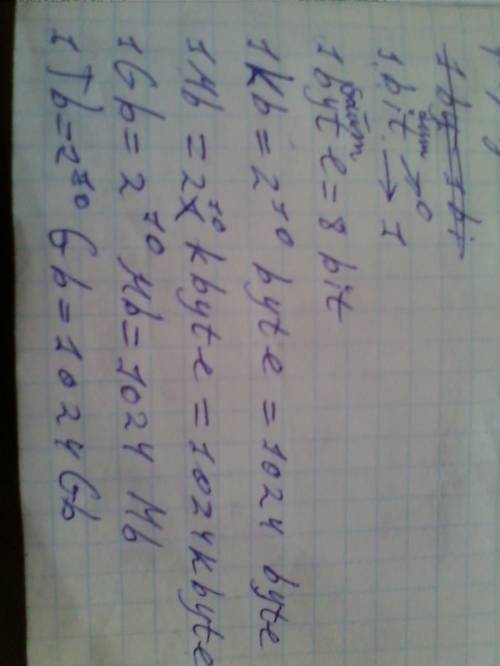 1 by = 1 bi
1 bit → 0
бит → 1
байт
1 byte = 8 bit
1 Kb = 2¹⁰ byte = 1024 byte
1 Mb = 2¹⁰ kbyte = 1024 kbyte
1 Gb = 2¹⁰ Mb = 1024 Mb
1 Tb = 2¹⁰ Gb = 1024 Gb